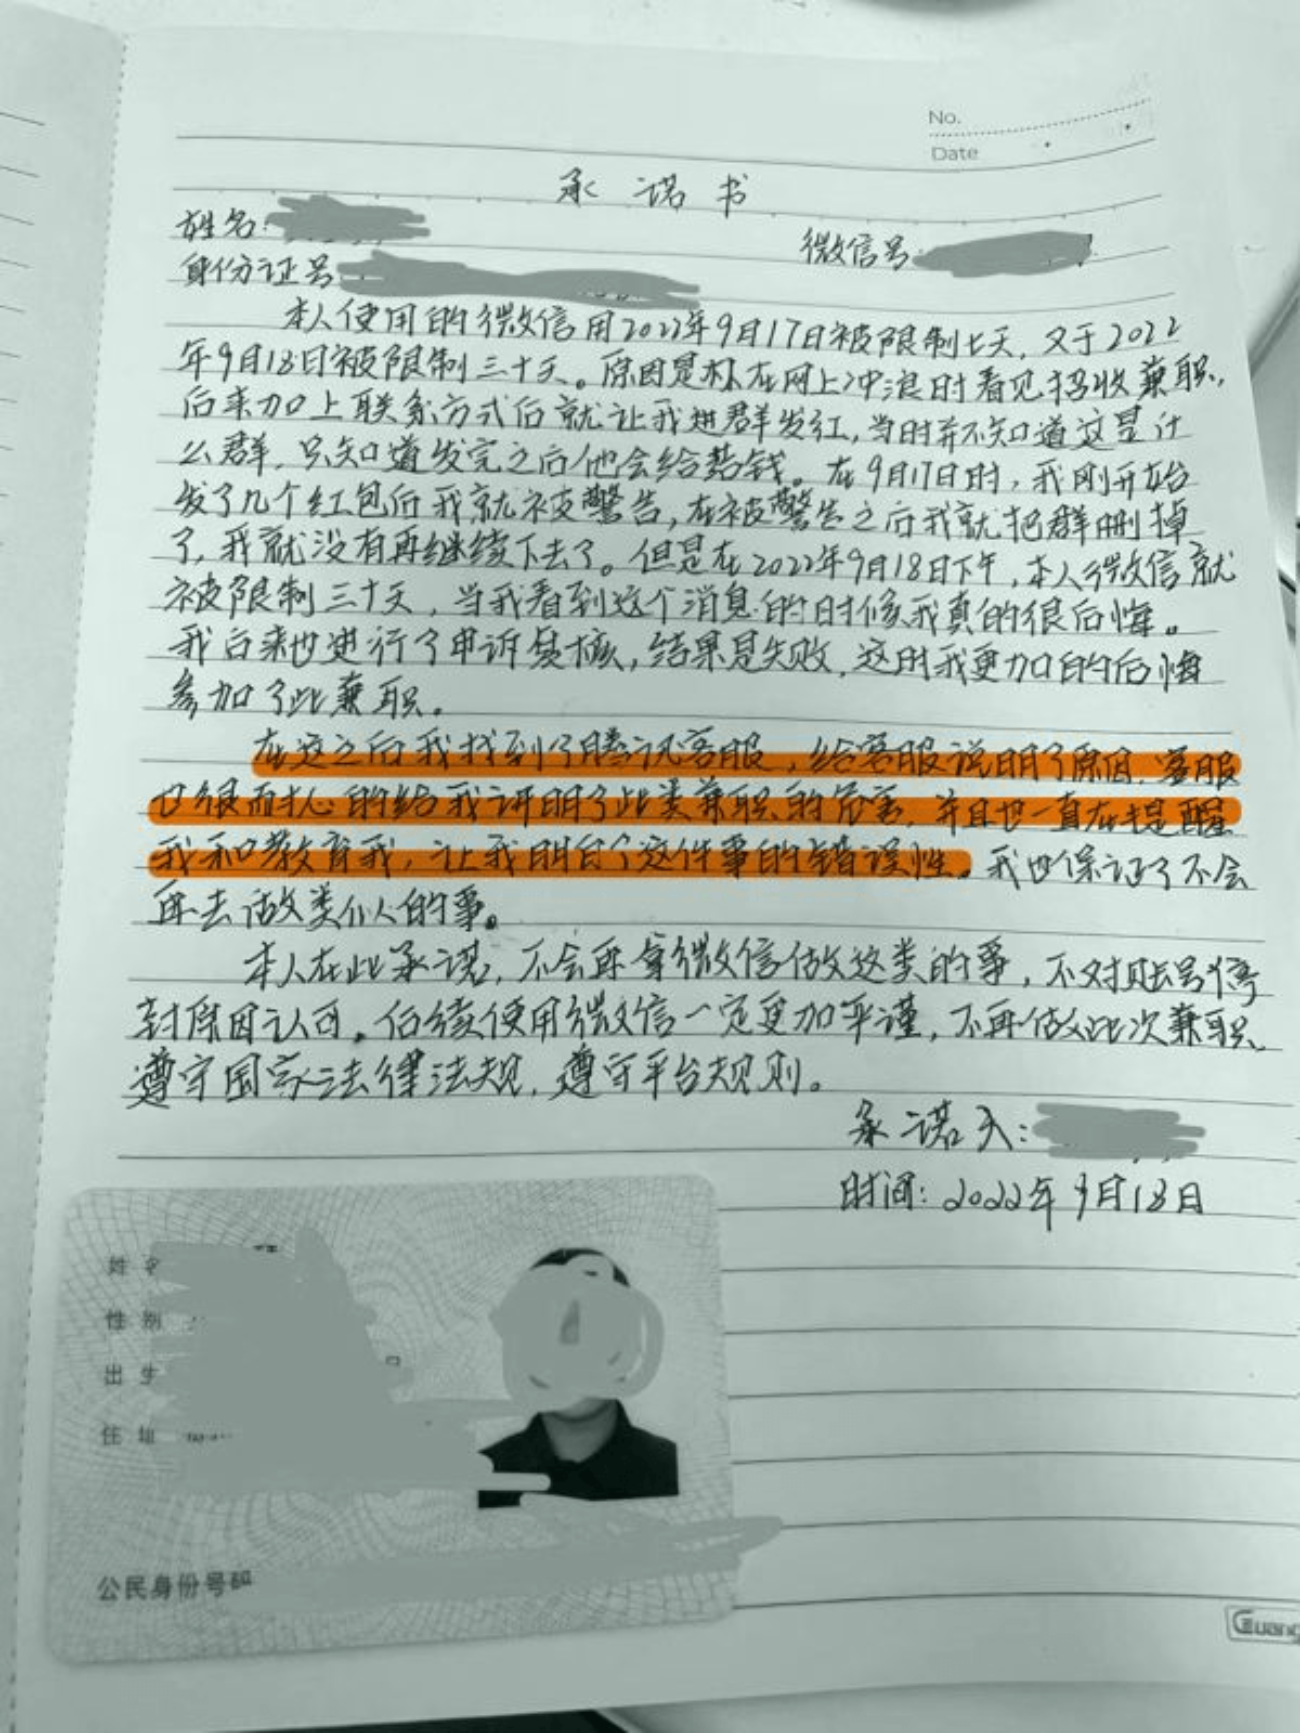 No.
Date
承诺书
姓名:
微信号
身份证号
本人使用的微信用2022年9月17日被限制七天,又于2022
年9月18日被限制三十天。原因是林在网上冲浪时看见招收兼职,
后来加上联系方式后就让我进群发红,当时并不知道这是什
么群,只知道发完之后他会给我钱。在9月17日时,我刚开始
发了几个红包后我就被警告,在被警告之后我就把群删掉
了,我就没有再继续下去了。但是在2022年9月18日下午,本人微信就
被限制三十天,当我看到这个消息的时候我真的很后悔。
我后来也进行了申诉复核,结果是失败,这时我更加的后悔
参加了此兼职。
在这之后我找到了腾讯客服,给客服说明了原因,客服
也很耐心的给我讲明了此类兼职的危害,并且也一直在提醒
我和教育我,让我明白了这件事的错误性。我也保证了不会
再去做类似的事。
本人在此承诺,不会再拿微信做这类的事,不对账号停
封原因认可。后续使用微信一定更加严谨,不再做此次兼职,
遵守国家法律法规,遵守平台规则。
承诺人:
时间:2022年9月18日
姓名
性别
出生
住址
公民身份号码
Guang